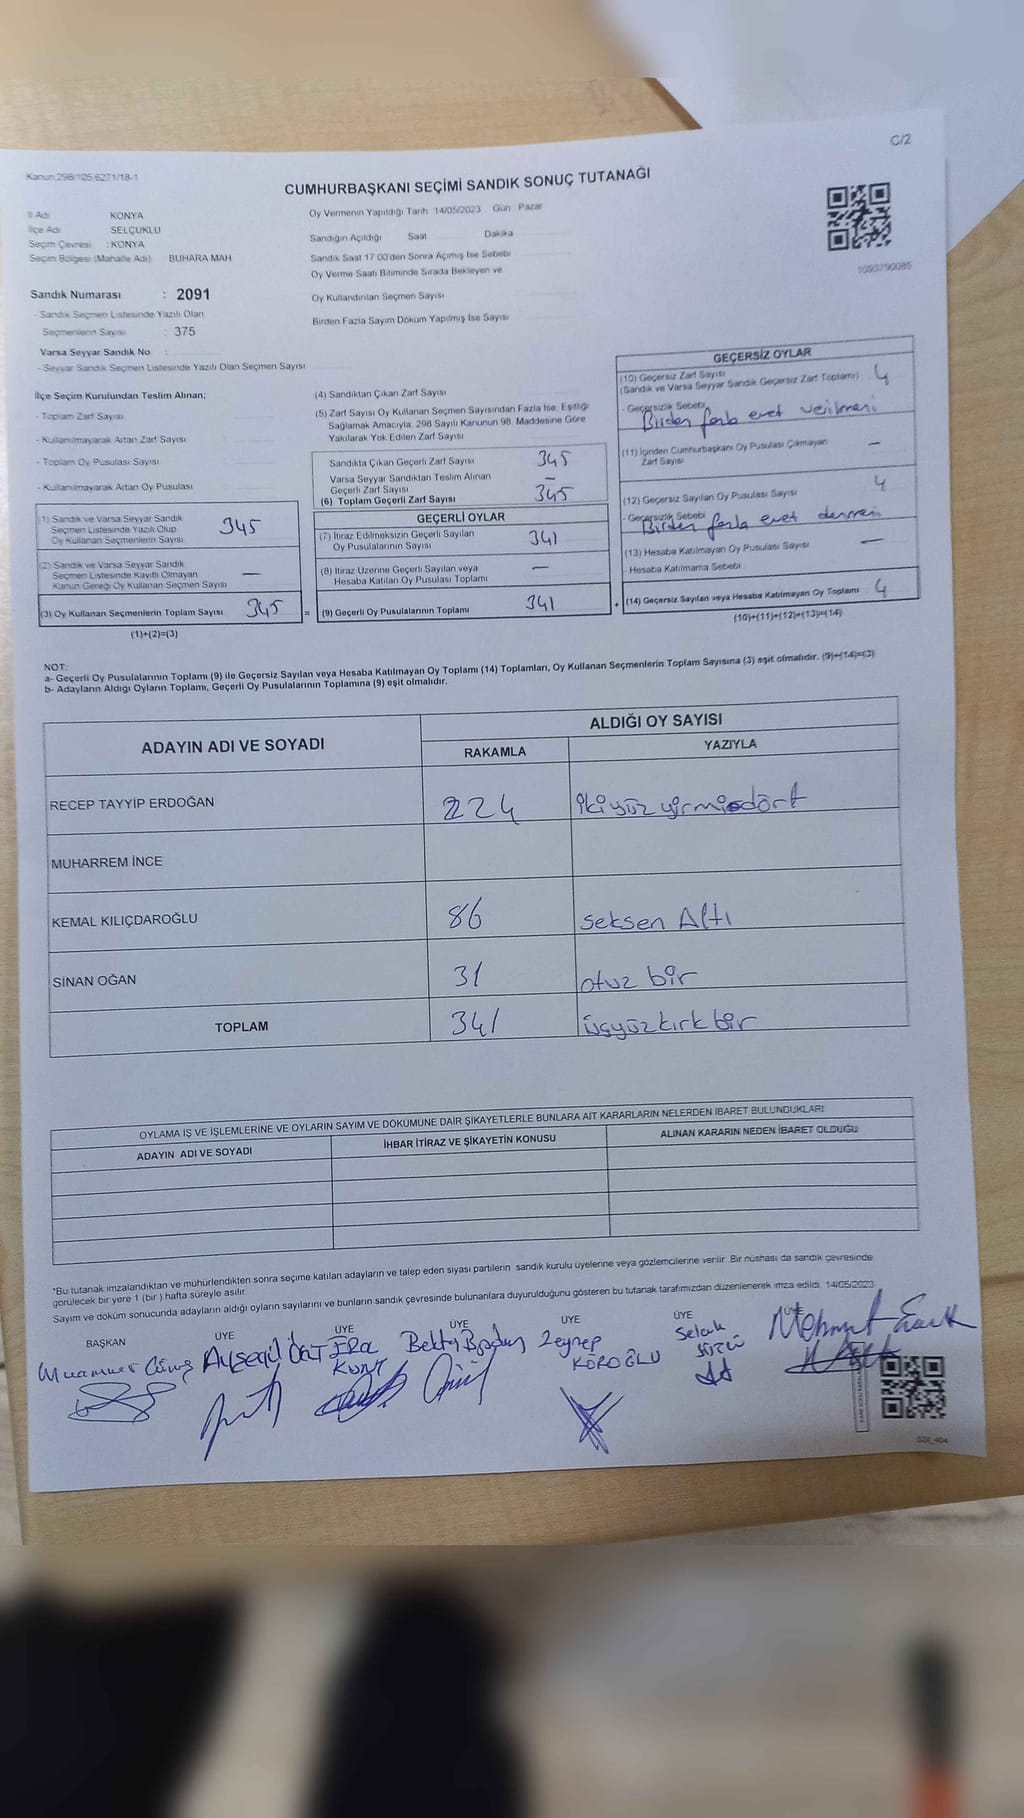 C/2
Kanun:298/105,6271/18-1
CUMHURBAŞKANI SEÇİMİ SANDIK SONUÇ TUTANAĞI
İl Adı KONYA
İlçe Adı SELÇUKLU
Seçim Çevresi : KONYA
Seçim Bölgesi (Mahalle Adı) BUHARA MAH
Sandık Numarası : 2091
- Sandık Seçmen Listesinde Yazılı Olan
Seçmenlerin Sayısı : 375
Varsa Seyyar Sandık No
- Seyyar Sandık Seçmen Listesinde Yazılı Olan Seçmen Sayısı
Oy Vermenin Yapıldığı Tarih 14/05/2023 Gün Pazar
Sandığın Açıldığı Saat Dakika
Sandık Saat 17.00'den Sonra Açılmış İse Sebebi
Oy Verme Saati Bitiminde Sırada Bekleyen ve
Oy Kullandırılan Seçmen Sayısı
Birden Fazla Sayım Döküm Yapılmış İse Sayısı
1093790085
İlçe Seçim Kurulundan Teslim Alınan;
- Toplam Zarf Sayısı
- Kullanılmayarak Artan Zarf Sayısı
- Toplam Oy Pusulası Sayısı
- Kullanılmayarak Artan Oy Pusulası
(1) Sandık ve Varsa Seyyar Sandık
Seçmen Listesinde Yazılı Olup
Oy Kullanan Seçmenlerin Sayısı 345
(2) Sandık ve Varsa Seyyar Sandık
Seçmen Listesinde Kayıtlı Olmayan
Kanun Gereği Oy Kullanan Seçmen Sayısı —
(3) Oy Kullanan Seçmenlerin Toplam Sayısı 345 =
(1)+(2)=(3)
(4) Sandıktan Çıkan Zarf Sayısı
(5) Zarf Sayısı Oy Kullanan Seçmen Sayısından Fazla İse, Eşitliği
Sağlamak Amacıyla, 298 Sayılı Kanunun 98. Maddesine Göre
Yakılarak Yok Edilen Zarf Sayısı
Sandıkta Çıkan Geçerli Zarf Sayısı 345
Varsa Seyyar Sandıktan Teslim Alınan
Geçerli Zarf Sayısı —
(6) Toplam Geçerli Zarf Sayısı 345
GEÇERLİ OYLAR
(7) İtiraz Edilmeksizin Geçerli Sayılan
Oy Pusulalarının Sayısı 341
(8) İtiraz Üzerine Geçerli Sayılan veya
Hesaba Katılan Oy Pusulası Toplamı —
(9) Geçerli Oy Pusulalarının Toplamı 341 +
GEÇERSİZ OYLAR
(10) Geçersiz Zarf Sayısı
(Sandık ve Varsa Seyyar Sandık Geçersiz Zarf Toplamı) 4
- Geçersizlik Sebebi
Birden fazla evet verilmesi
(11) İçinden Cumhurbaşkanı Oy Pusulası Çıkmayan
Zarf Sayısı —
(12) Geçersiz Sayılan Oy Pusulası Sayısı 4
- Geçersizlik Sebebi
Birden fazla evet
(13) Hesaba Katılmayan Oy Pusulası Sayısı —
- Hesaba Katılmama Sebebi
(14) Geçersiz Sayılan veya Hesaba Katılmayan Oy Toplamı 4
(10)+(11)+(12)+(13)=(14)
NOT:
a- Geçerli Oy Pusulalarının Toplamı (9) ile Geçersiz Sayılan veya Hesaba Katılmayan Oy Toplamı (14) Toplamları, Oy Kullanan Seçmenlerin Toplam Sayısına (3) eşit olmalıdır. (9)+(14)=(3)
b- Adayların Aldığı Oyların Toplamı, Geçerli Oy Pusulalarının Toplamına (9) eşit olmalıdır.
ADAYIN ADI VE SOYADI ALDIĞI OY SAYISI
RAKAMLA YAZIYLA
RECEP TAYYİP ERDOĞAN 224 ikiyüz yirmidört
MUHARREM İNCE
KEMAL KILIÇDAROĞLU 86 seksen Altı
SİNAN OĞAN 31 otuz bir
TOPLAM 341 üçyüzkırkbir
OYLAMA İŞ VE İŞLEMLERİNE VE OYLARIN SAYIM VE DÖKÜMÜNE DAİR ŞİKAYETLERLE BUNLARA AİT KARARLARIN NELERDEN İBARET BULUNDUKLARI
ADAYIN ADI VE SOYADI İHBAR İTİRAZ VE ŞİKAYETİN KONUSU ALINAN KARARIN NEDEN İBARET OLDUĞU
*Bu tutanak imzalandıktan ve mühürlendikten sonra seçime katılan adayların ve talep eden siyasi partilerin sandık kurulu üyelerine veya gözlemcilerine verilir. Bir nüshası da sandık çevresinde
görülecek bir yere 1 (bir) hafta süreyle asılır.
Sayım ve döküm sonucunda adayların aldığı oyların sayılarını ve bunların sandık çevresinde bulunanlara duyurulduğunu gösteren bu tutanak tarafımızdan düzenlenerek imza edildi. 14/05/2023
BAŞKAN ÜYE ÜYE ÜYE ÜYE ÜYE ÜYE
Muammer Güneş Ayşegül ESRA Zeynep Selçuk Mehmet
KÖROĞLU